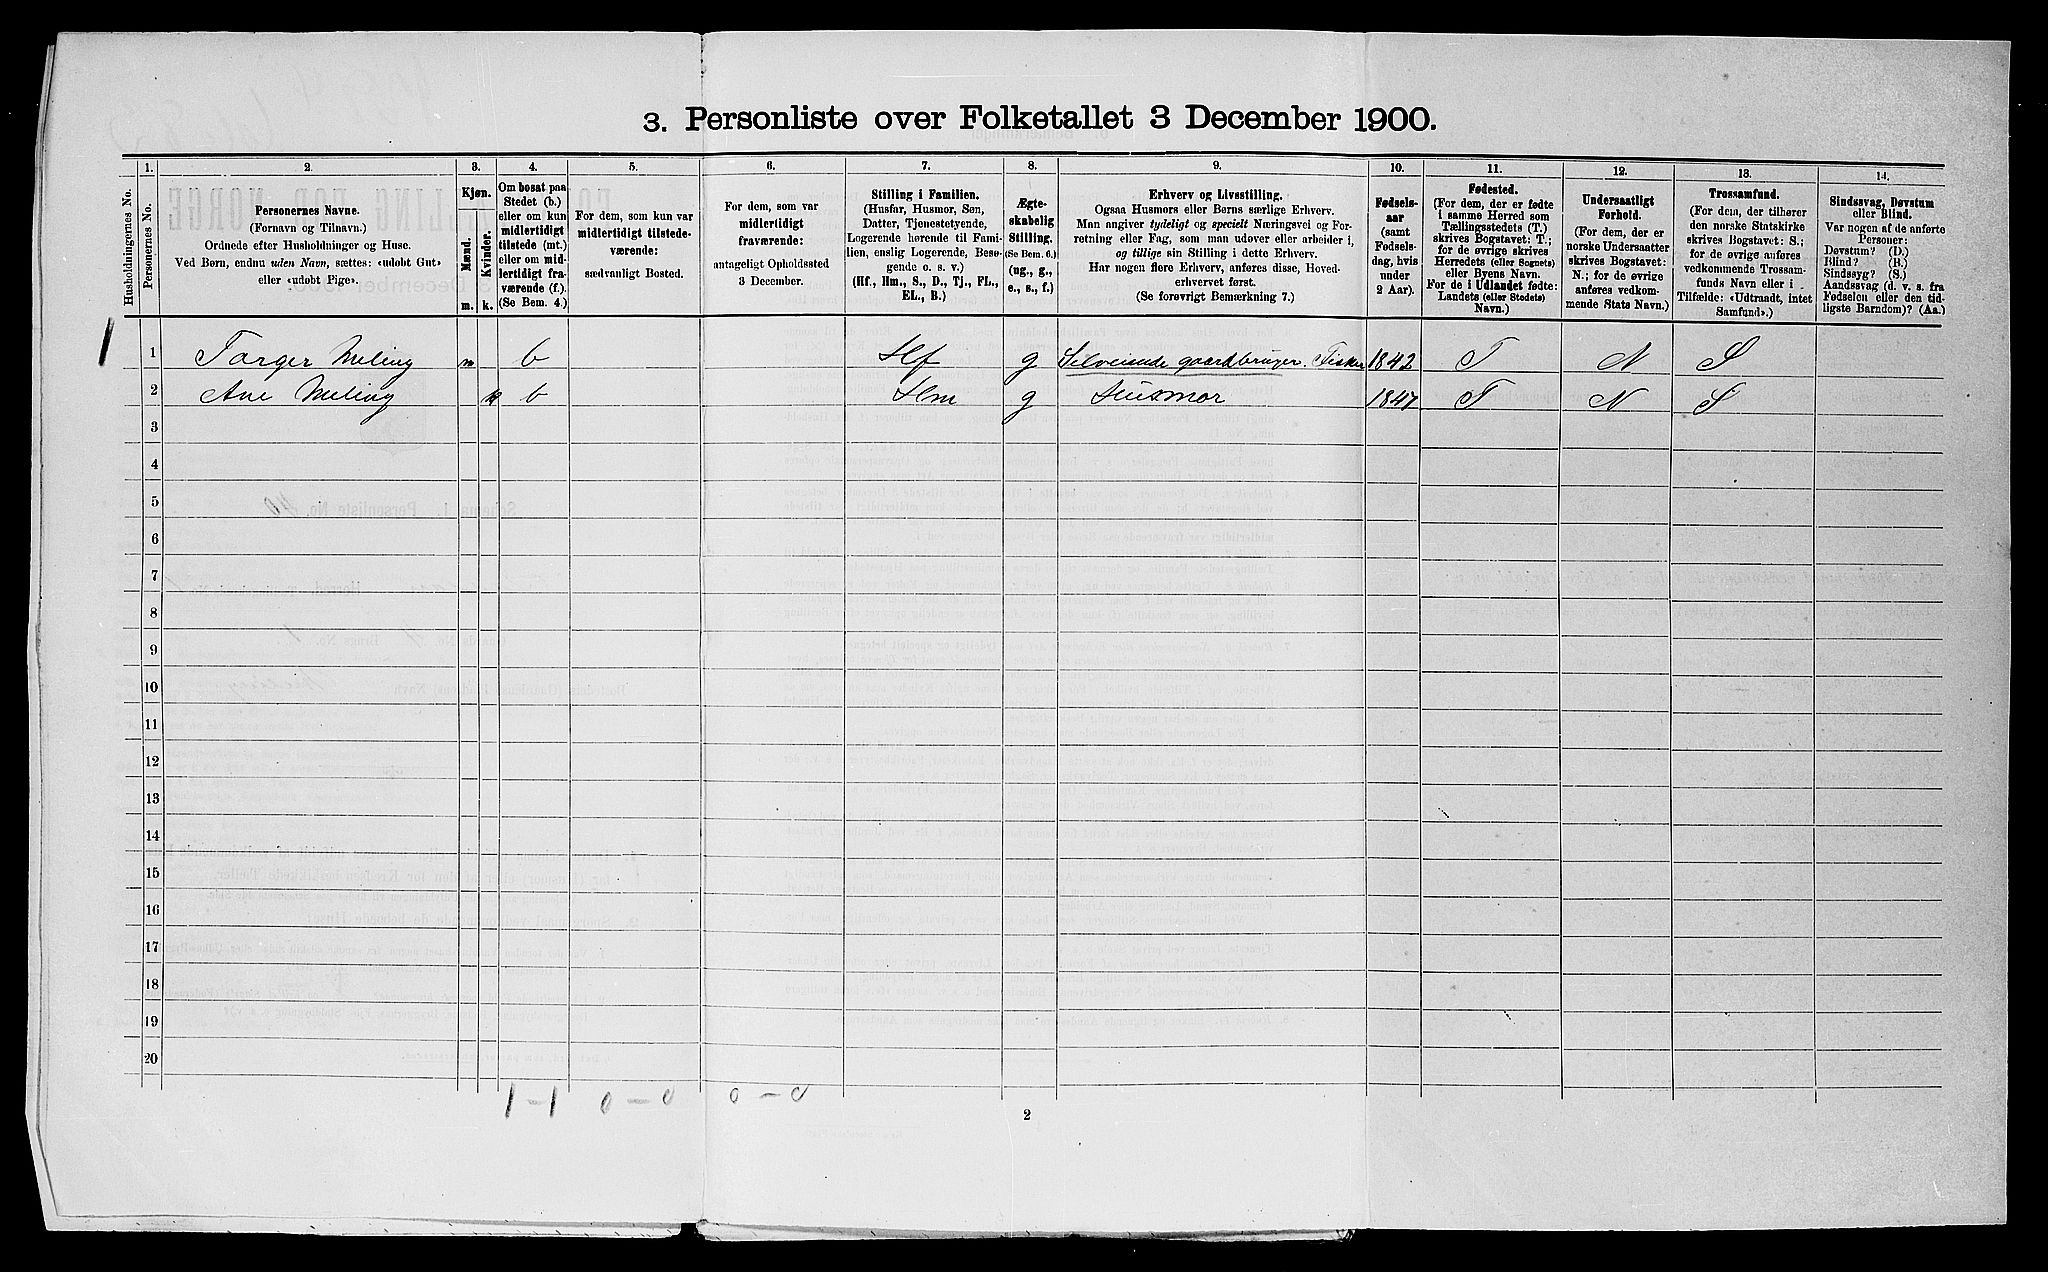 3. Personliste over Folketallet 3 December 1900.
1. 2. 3. 4. 5. 6. 7. 8. 9. 10. 11. 12. 13. 14.
Husholdningernes No.
Personernes No.
Personernes Navne.
(Fornavn og Tilnavn.)
Ordnede efter Husholdninger og Huse.
Ved Børn, endnu uden Navn, sættes: «udøbt Gut»
eller «udøbt Pige».
Kjøn.
Mænd.
Kvinder.
m. k.
Om bosat paa
Stedet (b.)
eller om kun
midlertidigt
tilstede (mt.)
eller om mid-
lertidigt fra-
værende (f.)
(Se Bem. 4.)
For dem, som kun var
midlertidigt tilstede-
værende:
sædvanligt Bosted.
For dem, som var
midlertidigt
fraværende:
antageligt Opholdssted
3 December.
Stilling i Familien.
(Husfar, Husmor, Søn,
Datter, Tjenestetyende,
Logerende hørende til Fami-
lien, enslig Logerende, Besø-
gende o. s. v.)
(Hf., Hm., S., D., Tj., FL.,
EL., B.)
Ægte-
skabelig
Stilling.
(Se Bem. 6.)
(ug., g.,
e., s., f.)
Erhverv og Livsstilling.
Ogsaa Husmors eller Børns særlige Erhverv.
Man angiver tydeligt og specielt Næringsvei og For-
retning eller Fag, som man udøver eller arbeider i,
og tillige sin Stilling i dette Erhverv.
Har nogen flere Erhverv, anføres disse, Hoved-
erhvervet først.
(Se forøvrigt Bemærkning 7.)
Fødsels-
aar
(samt
Fødsels-
dag, hvis
under
2 Aar).
Fødested.
(For dem, der er fødte
i samme Herred som
Tællingsstedets (T.)
skrives Bogstavet: T.;
for de øvrige skrives
Herredets (eller Sognets)
eller Byens Navn.
For de i Udlandet fødte:
Landets (eller Stedets)
Navn.)
Undersaatligt
Forhold.
(For dem, der er
norske Undersaatter
skrives Bogstavet:
N.; for de øvrige
anføres vedkom-
mende Stats Navn.)
Trossamfund.
(For dem, der tilhører
den norske Statskirke
skrives Bogstavet: S.;
for de øvrige anføres
vedkommende Trossam-
funds Navn eller i
Tilfælde: «Udtraadt, intet
Samfund».)
Sindssvag, Døvstum
eller Blind.
Var nogen af de anførte
Personer:
Døvstum? (D.)
Blind? (B.)
Sindssyg? (S.)
Aandssvag (d. v. s. fra
Fødselen eller den tid-
ligste Barndom)? (Aa.)
1 1 Torger Meling m b Hf g Selveiende gaardbruger. Fisker 1842 T N S
2 Ane Meling k b Hm g Husmor 1847 T N S
3
4
5
6
7
8
9
10
11
12
13
14
15
16
17
18
19
20
1-1 0-0 0-0
2